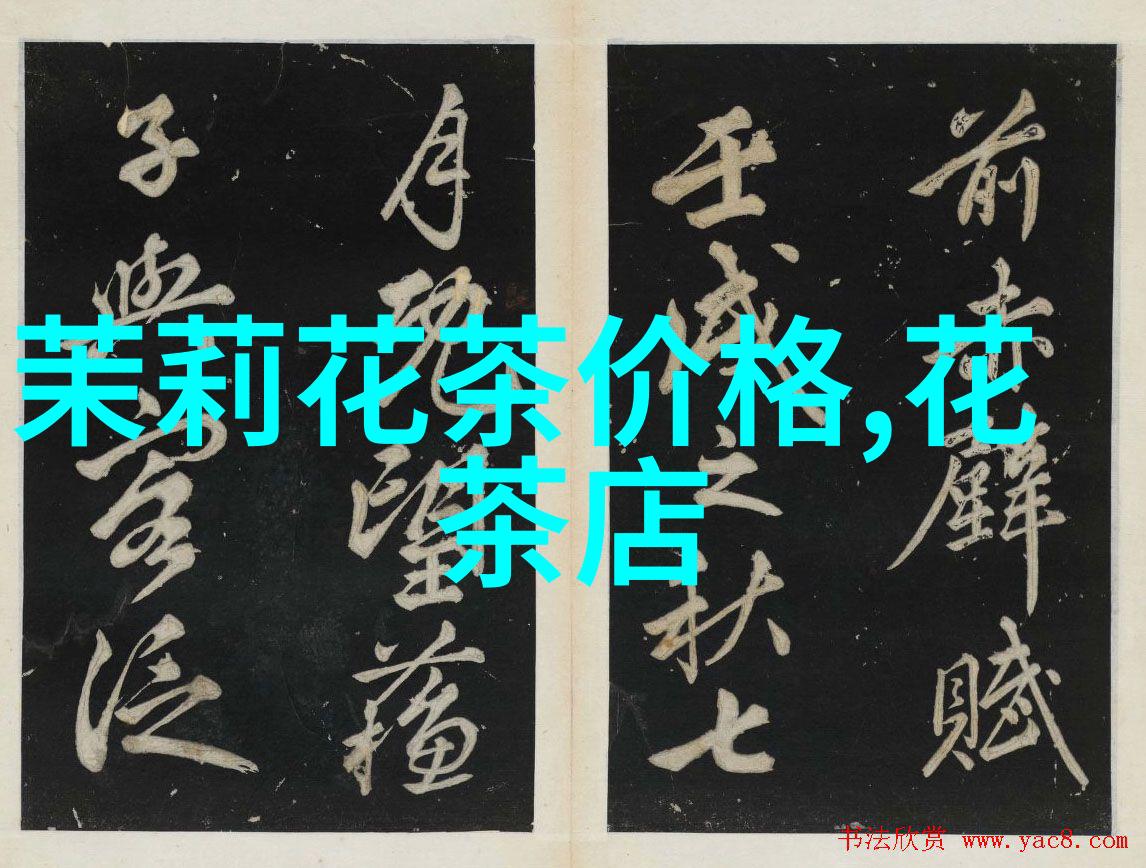 前赤壁賦
壬戌之秋七
月既望蘇
子與客泛
茉莉花茶价格,花
茶店
书法欣赏 www.yac8.com